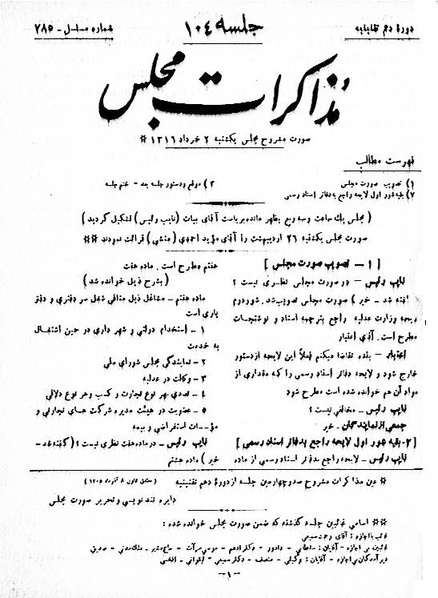 دورهٔ دهم تقنینیه
جلسه ۱۰۴
شماره مسلسل - ۷۸۵
مذاکرات مجلس
صورت مشروح مجلس یکشنبه ۲ خرداد ۱۳۱۶ *
فهرست مطالب
۱) تصویب صورت مجلس
۲) بقیه شور اول لایحه راجع بدفاتر اسناد رسمی
۳) موقع و دستور جلسه بعد - ختم جلسه
(مجلس یك ساعت و سه ربع بظهر مانده بریاست آقای بیات (نایب رئیس) تشکیل گردید)
صورت مجلس یکشنبه ۲۶ اردیبهشت را آقای مؤید احمدی (منشی) قرائت نمودند **
[۱ - تصویب صورت مجلس]
نایب رئیس - در صورت مجلس نظری نیست؟
(گفته شد - خیر) صورت مجلس تصویب شد. شور دوم
وزارت عدلیه راجع بترجمه اسناد و نوشتجات
مطرح است. آقای اعتبار
اعتبار - بنده تقاضا میکنم فعلاً این لایحه از دستور
خارج شود و لایحه دفاتر اسناد رسمی را که مقداری از
مواد آن هم خوانده شده است مطرح شود
نایب رئیس - مخالفی نیست؟
جمعی از نمایندگان - خیر
[۲- بقیه شور اول لایحه راجع بدفاتر اسناد رسمی]
نایب رئیس - لایحه راجع بدفاتر اسناد رسمی از ماده
هفتم مطرح است. ماده هفت
(بشرح ذیل خوانده شد)
ماده هفتم - مشاغل ذیل منافی شغل سر دفتری و دفتر
یاری است
۱ - استخدام دولتی و شهرداری در حین اشتغال
به خدمت
۲ - نمایندگی مجلس شورای ملی
۳ - وکالت در عدلیه
۴ - تصدی بهر نوع تجارت و کسب و هر نوع دلالی
۵ - عضویت در هیئت مدیره شرکت های تجارتی و
مؤسسات استقراضی و بیمه
نایب رئیس - در ماده هفت نظری نیست؟ (گفته شد -
خیر) ماده هشتم
* عین مذاکرات مشروح صد و چهارمین جلسه از دورهٔ دهم تقنینیه
دایره تند نویسی و تحریر صورت مجلس
** اسامی غائبین جلسه گذشته که ضمن صورت مجلس خوانده شده:
- ۱ -